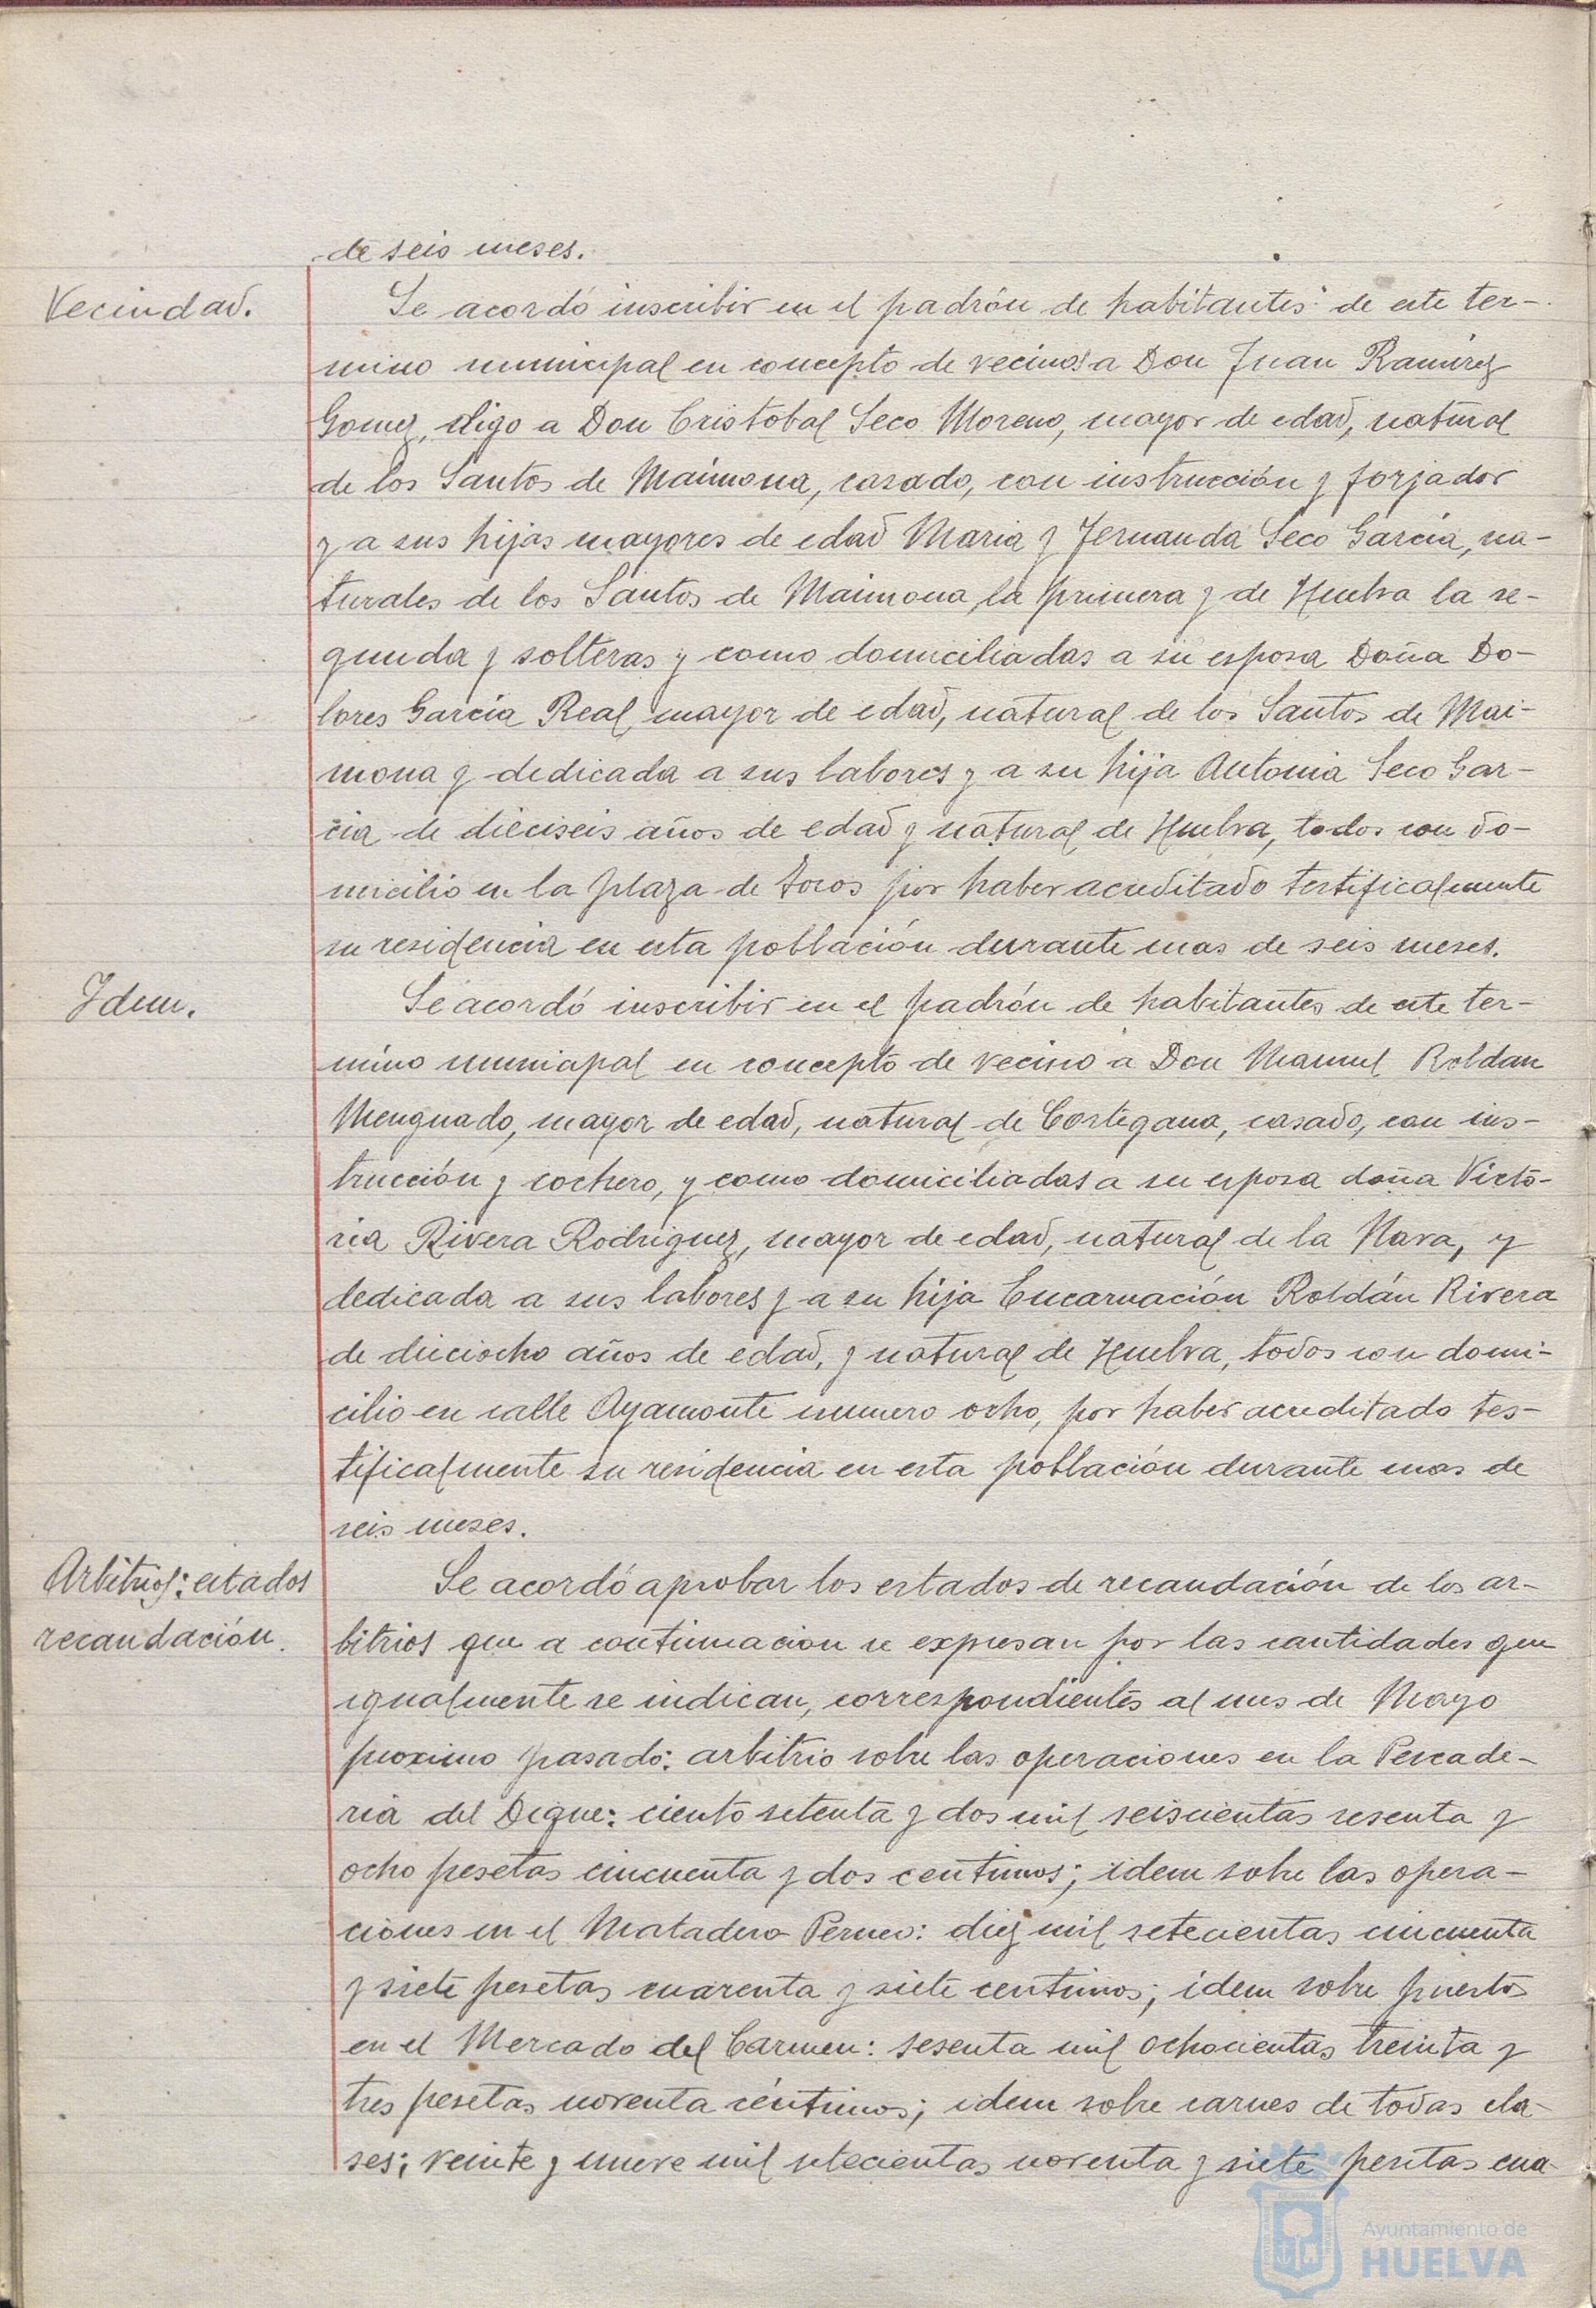 de seis meses.
Vecindad.
Se acordó inscribir en el padrón de habitantes de este ter-
mino municipal en concepto de vecinos a Don Juan Ramirez
Gomez, digo a Don Cristobal Seco Moreno, mayor de edad, natural
de los Santos de Maimona, casado, con instrucción y forjador
y a sus hijas mayores de edad Maria y Fernanda Seco García, na-
turales de los Santos de Maimona, la primera y de Huelva la se-
gunda y solteras y como domiciliadas a su esposa Doña Do-
lores García Real mayor de edad, natural de los Santos de Mai-
mona y dedicada a sus labores y a su hija Antonia Seco Gar-
cia de dieciseis años de edad y natural de Huelva, todos con do-
micilio en la plaza de toros por haber acreditado testificalmente
su residencia en esta población durante mas de seis meses.
Idem.
Se acordó inscribir en el padrón de habitantes de este ter-
mino municipal en concepto de vecino a Don Manuel Roldan
Menguado, mayor de edad, natural de Cortegana, casado, con ins-
trucción y cochero, y como domiciliadas a su esposa doña Victo-
ria Rivera Rodriguez, mayor de edad, natural de la Nava, y
dedicada a sus labores y a su hija Encarnación Roldán Rivera
de dieciocho años de edad, y natural de Huelva, todos con domi-
cilio en calle Ayamonte numero ocho, por haber acreditado tes-
tificalmente su residencia en esta población durante mas de
seis meses.
Arbitrios: estados
recaudación.
Se acordó aprobar los estados de recaudación de los ar-
bitrios que a continuacion se expresan por las cantidades que
igualmente se indican, correspondientes al mes de Mayo
proximo pasado: arbitrio sobre las operaciones en la Pescade-
ria del Dique: ciento setenta y dos mil seiscientas sesenta y
ocho pesetas cincuenta y dos centimos; idem sobre las opera-
ciones en el Matadero Perneo: diez mil setecientas cincuenta
y siete pesetas cuarenta y siete centimos; idem sobre puestos
en el Mercado del Carmen: sesenta mil ochocientas treinta y
tres pesetas noventa céntimos; idem sobre carnes de todas cla-
ses; veinte y nueve mil setecientas noventa y siete pesetas cua-
Ayuntamiento de
HUELVA